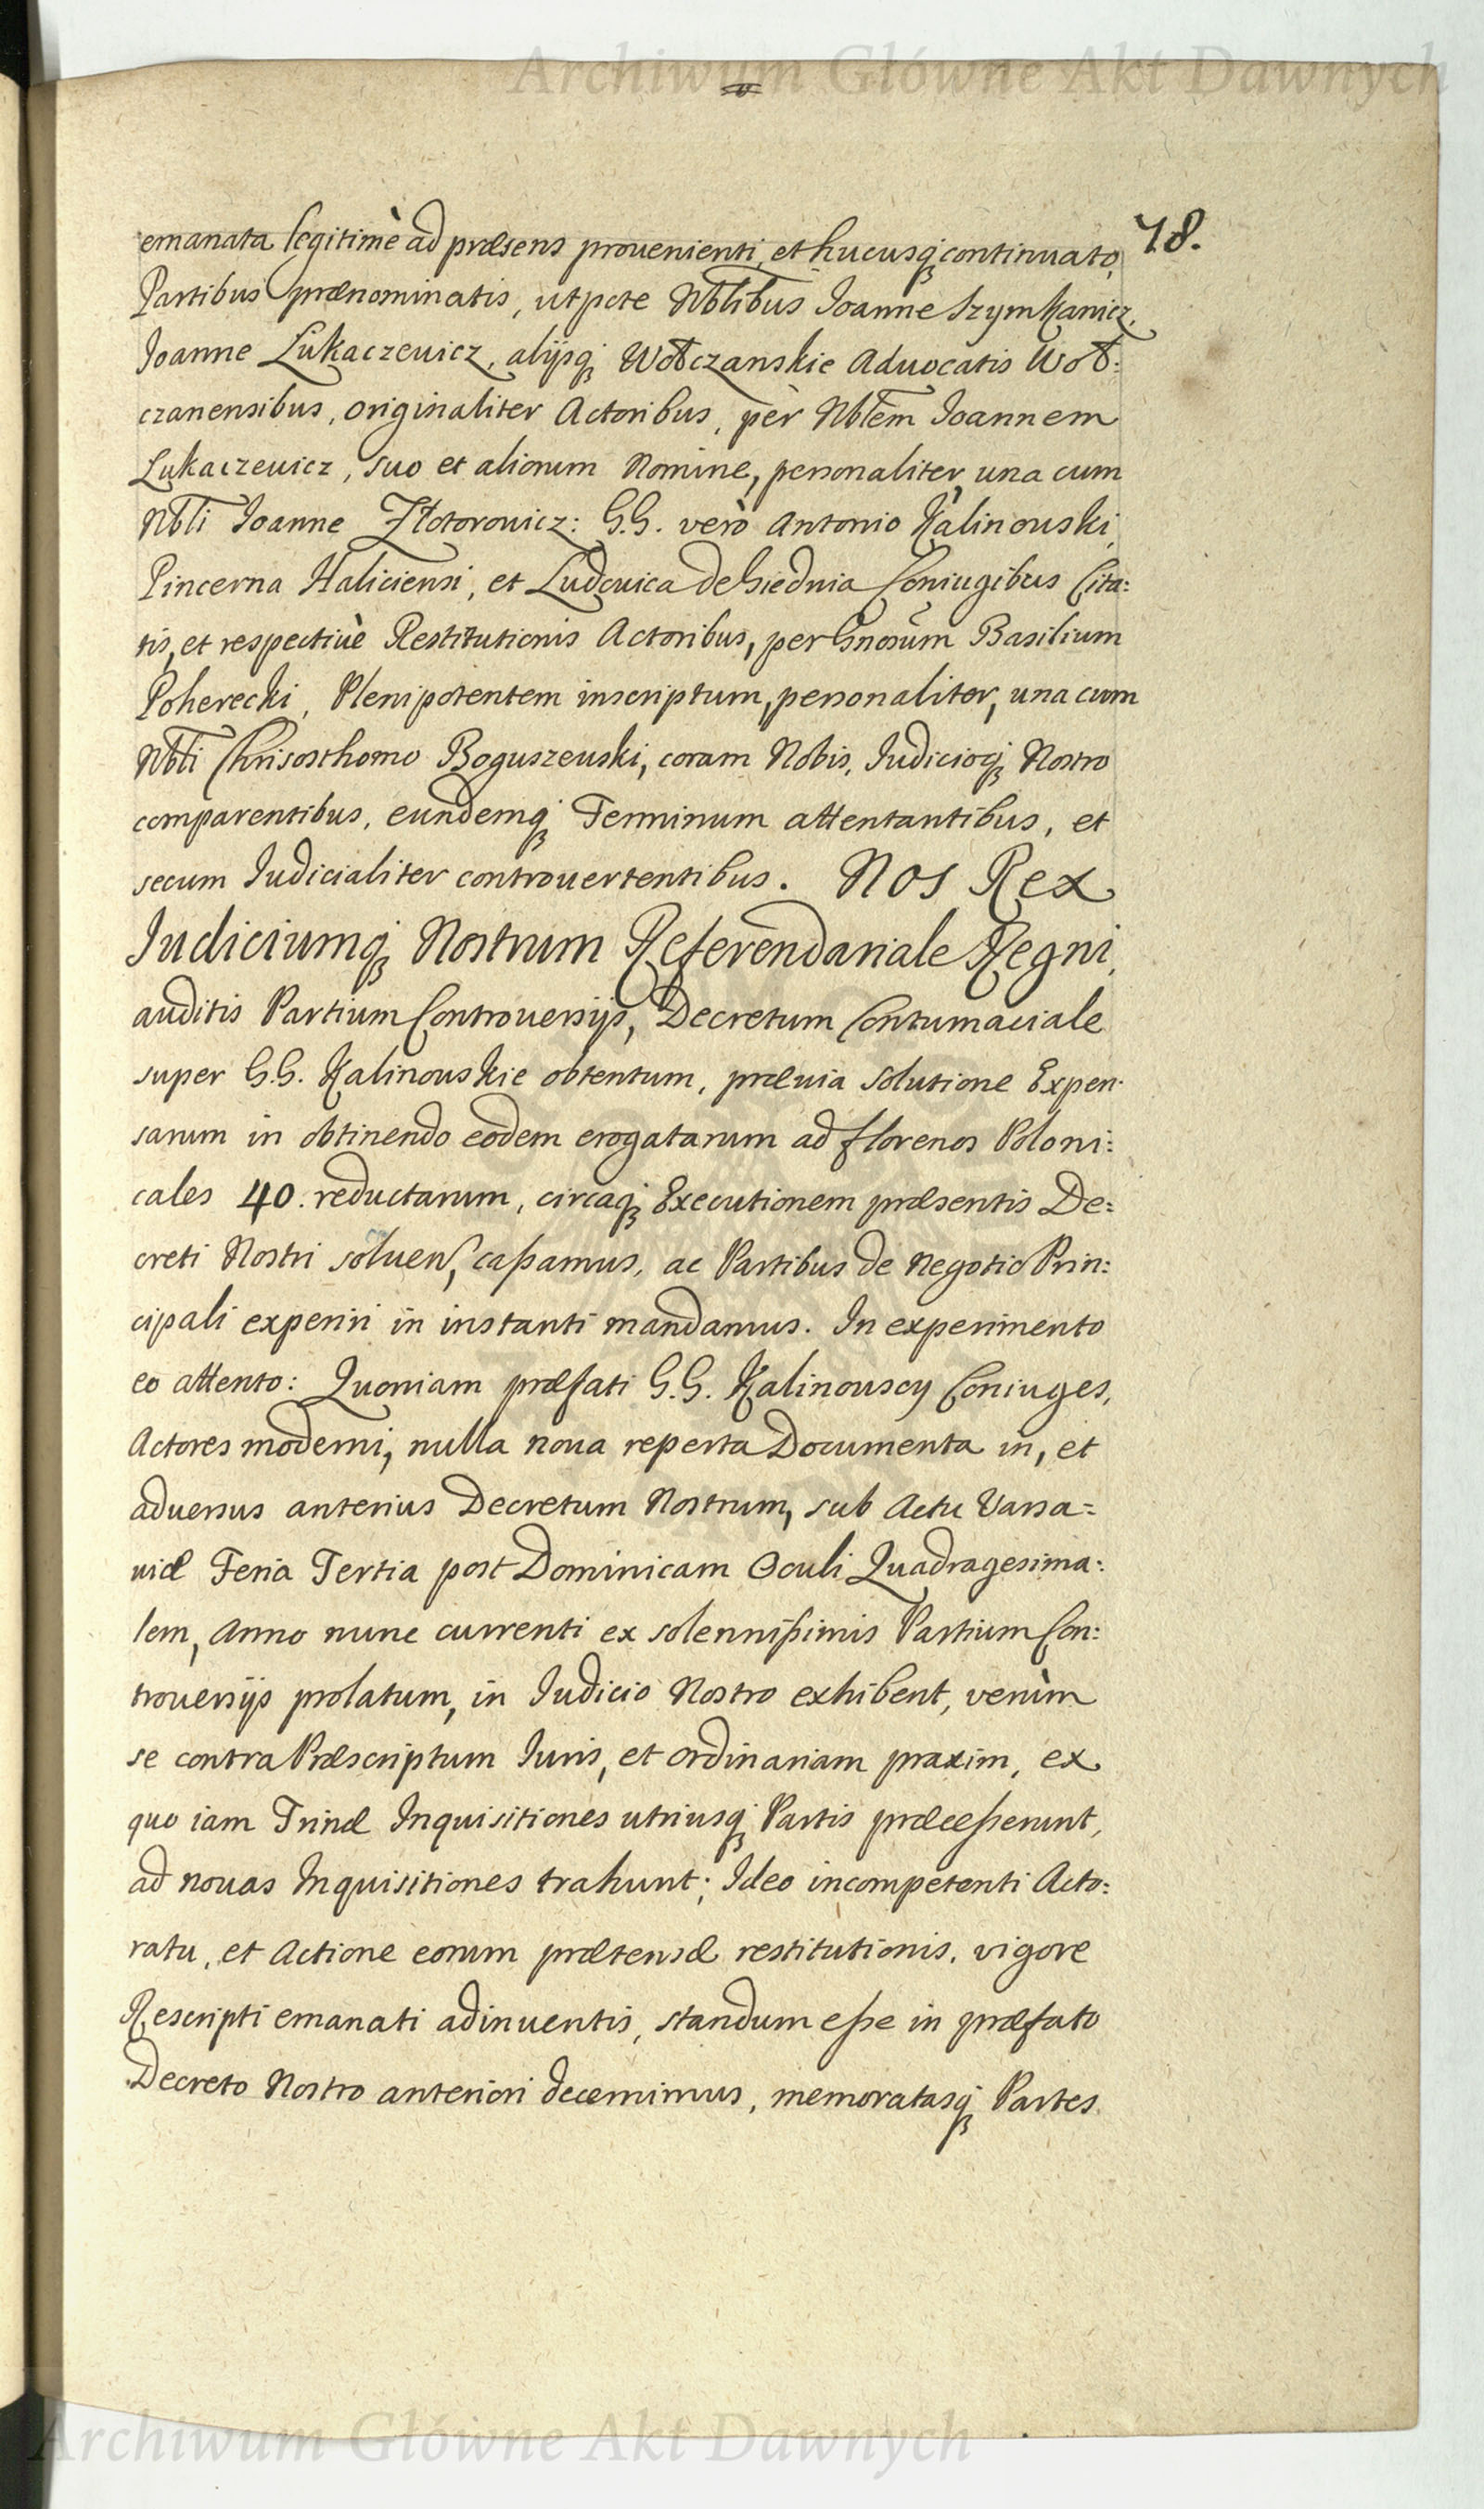 Archiwum Główne Akt Dawnych
78.
emanata legitimè ad præsens prouenienti, et hucusq; continuato,
Partibus prænominatis, utpote Nblibus Joanne Szymkanicz,
Joanne Lukaczevicz, alijsq; Wołczanskie Advocatis Woł:
czanensibus, originaliter Actoribus, per Nblem Joannem
Lukaczevicz, suo et aliorum Nomine, personaliter, una cum
Nbli Joanne Złotorowicz: G.G. verò Antonio Kalinouski,
Pincerna Haliciensi, et Ludovica de Siednia Coniugibus Cita:
tis, et respectiuè Restitutionis Actoribus, per Gnosum Basilium
Poherecki, Plenipotentem inscriptum, personaliter, una cum
Nbli Chrisosthomo Boguszeuski, coram Nobis, Judicioq; Nostro
comparentibus, eundemq; Terminum attentantibus, et
secum Judicialiter controuertentibus. Nos Rex
Judiciumq; Nostrum Referendariale Regni,
auditis Partium Controuersijs, Decretum Contumaciale
super G.G. Kalinouskie obtentum, præuia solutione Expen:
sarum in obtinendo eodem erogatarum ad florenos Poloni:
cales 40. reductarum, circaq; Executionem præsentis De:
creti Nostri soluen, caßamus, ac Partibus de Negotio Prin:
cipali experiri in instanti mandamus. In experimento
eo attento: Quoniam præfati G.G. Kalinouscy Coniuges,
Actores moderni, nulla noua reperta Documenta in, et
aduersus anterius Decretum Nostrum, sub Actu Varsa=
uiæ Feria Tertia post Dominicam Oculi Quadragesima:
lem, Anno nunc currenti ex solennißimis Partium Con:
trouersijs prolatum, in Judicio Nostro exhibent, verùm
se contra Præscriptum Juris, et ordinariam praxim, ex
quo iam Trinæ Inquisitiones utriusq; Partis præceßerunt,
ad nouas Inquisitiones trahunt; Ideo incompetenti Acto:
ratu, et Actione eorum prætensæ restitutionis, vigore
Rescripti emanati adinuentis, standum eße in præfato
Decreto Nostro anteriori decernimus, memoratasq; Partes
Archiwum Główne Akt Dawnych